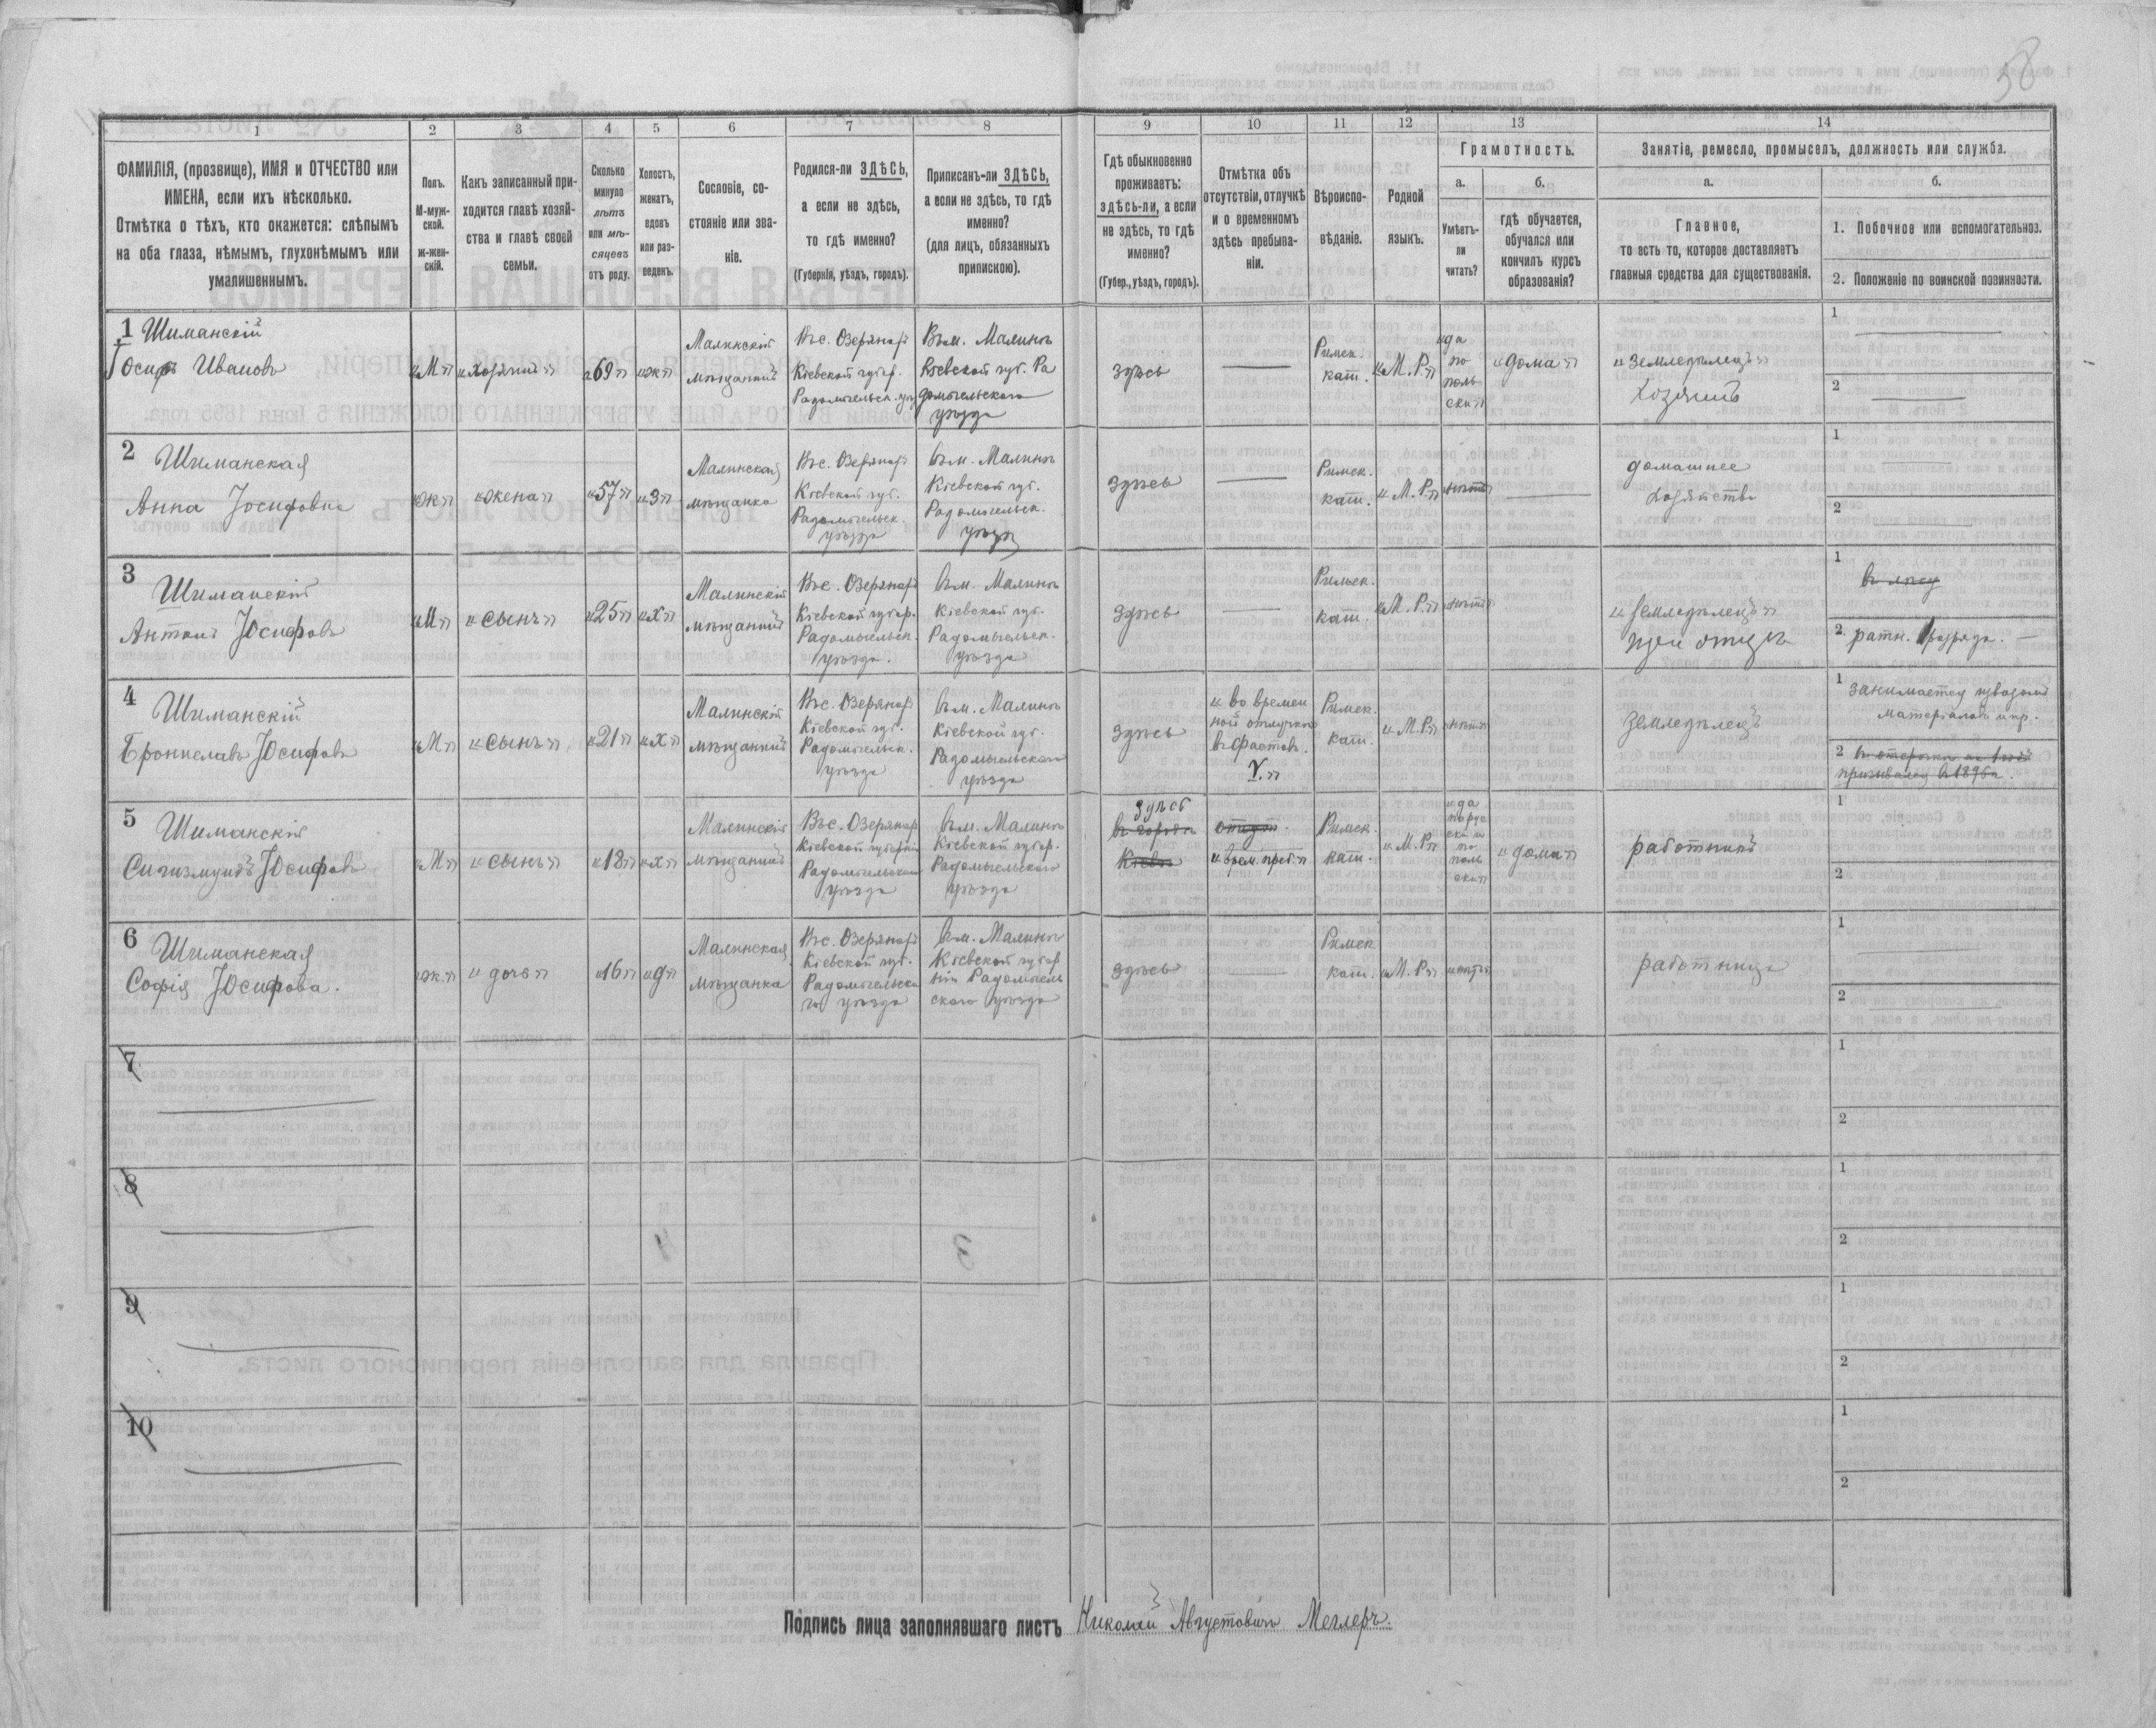 58
1 2 3 4 5 6 7 8 9 10 11 12 13 14
ФАМИЛІЯ, (прозвище), ИМЯ и ОТЧЕСТВО или
ИМЕНА, если ихъ нѣсколько.
Отмѣтка о тѣхъ, кто окажется: слѣпымъ
на оба глаза, нѣмымъ, глухонѣмымъ или
умалишеннымъ.
Полъ.
М-муж-
ской.
ж-жен-
скій.
Какъ записанный при-
ходится главѣ хозяй-
ства и главѣ своей
семьи.
Сколько
минуло
лѣтъ
или мѣ-
сяцевъ
отъ роду.
Холостъ,
женатъ,
вдовъ
или раз-
веденъ.
Сословіе, со-
стояніе или зва-
ніе.
Родился-ли ЗДѢСЬ,
а если не здѣсь,
то гдѣ именно?
(Губернія, уѣздъ, городъ).
Приписанъ-ли ЗДѢСЬ,
а если не здѣсь, то гдѣ
именно?
(для лицъ, обязанныхъ
припискою).
Гдѣ обыкновенно
проживаетъ:
здѣсь-ли, а если
не здѣсь, то гдѣ
именно?
(Губер., уѣздъ, городъ).
Отмѣтка объ
отсутствіи, отлучкѣ
и о временномъ
здѣсь пребыва-
ніи.
Вѣроиспо-
вѣданіе.
Родной
языкъ.
Грамотность.
а.
Умѣетъ-
ли
читать?
б.
гдѣ обучается,
обучался или
кончилъ курсъ
образованія?
Занятіе, ремесло, промыселъ, должность или служба.
а.
Главное,
то есть то, которое доставляетъ
главныя средства для существованія.
б.
1. Побочное или вспомогательное.
2. Положеніе по воинской повинности.
1 Шиманскій
Іосифъ Ивановъ
"М"
"хозяинъ"
"69"
"ж"
Малинскій
мѣщанинъ
Въ с. Озеряхъ
Кіевской губер.
Радомысльск. уѣз
Въ м. Малинъ
Кіевской губ. Ра
домысльскаго
уѣзда
здѣсь
Римск.
кат.
"М. Р."
"да
по
поль
ски"
"дома"
"земледѣлецъ"
хозяинъ
1
2
2 Шиманская
Анна Іосифовна
"ж"
"жена"
"57"
"з"
Малинская
мѣщанка
Кіевской губ.
Радомысльск.
уѣзда
Въ м. Малинъ
Кіевской губ.
Радомысльск.
уѣзд
здѣсь
Римск.
кат.
"М. Р."
"нѣтъ"
домашнее
хозяйство
1
2
3 Шиманскій
Антонъ Юсифовъ
"М"
"сынъ"
"25"
"х"
Малинскій
мѣщанинъ
Кіевской губер.
Радомысльск.
уѣзда.
Въ м. Малинъ
Кіевской губ.
Радомысльск.
уѣзда
здѣсь
Римск.
кат.
"М. Р."
"нѣтъ"
"земледѣлецъ"
при отцѣ
1
2. ратн. 1 разряда.
4 Шиманскій
Брониславъ Юсифовъ
"М"
"сынъ"
"21"
"х"
Малинскій
мѣщанинъ
Кіевской губ.
Радомысльск.
уѣзда
Въ м. Малинъ
Кіевской губ.
Радомысльскаго
уѣзда
здѣсь
"во времен
ной отлучкѣ
въ Фастовъ.
Римск.
кат.
"М. Р."
"нѣтъ"
земледѣлецъ
1 занимается извозомъ
матеріаловъ и пр.
2
призывался въ 1896 г.
5 Шиманскій
Сигизмундъ Юсифовъ
"М"
"сынъ"
"18"
"х"
Малинскій
мѣщанинъ
Кіевской губерніи
Радомысльскаго
уѣзда
Въ м. Малинъ
Кіевской губер.
Радомысльскаго
уѣзда
здѣсь
въ городѣ
Кіевѣ
"врем. преб."
Римск.
кат.
"М. Р."
"да
по рус
ски и
по
поль
ски"
"дома"
работникъ
1
2
6 Шиманская
Софія Юсифова.
"ж."
"дочь"
"16"
"д"
Малинская
мѣщанка
Кіевской губ.
Радомысльска
го уѣзда
Въ м. Малинъ
Кіевской губер
ніи Радомысль
скаго уѣзда
здѣсь
Римск
кат.
"М. Р."
"нѣтъ"
работница
1
2
7
1
2
8
1
2
9
1
2
10
1
2
Подпись лица заполнявшаго листъ Николай Августовичъ Меллеръ.